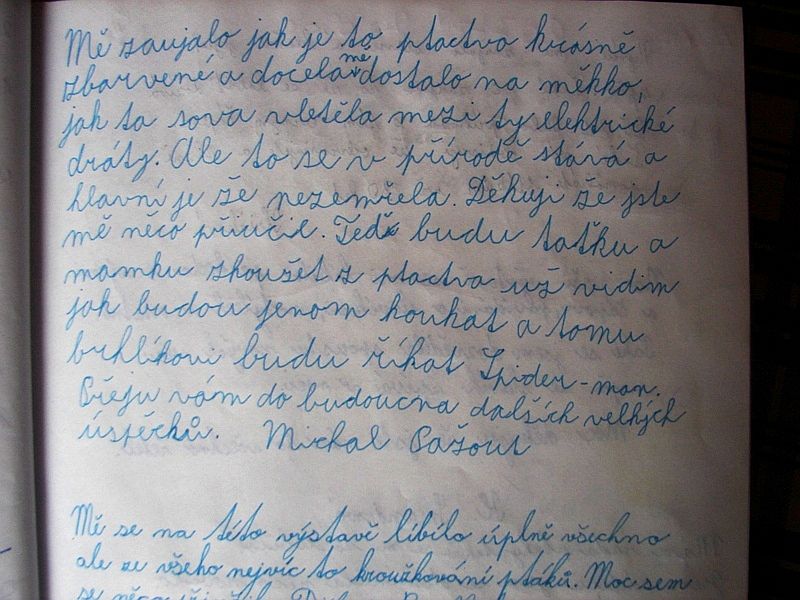 Mě zaujalo jak je to ptactvo krásně
zbarvené a docela mě dostalo na měkko,
jak ta sova vletěla mezi ty elektrické
dráty. Ale to se v přírodě stává a
hlavní je že nezemřela. Děkuji že jste
mě něco přiučil. Teď budu taťku a
mamku zkoušet z ptactva už vidim
jak budou jenom koukat a tomu
brhlíkovi budu říkat Spider-man.
Přeju vám do budoucna dalších velkých
úspěchů. Michal Pažout
Mě se na této výstavě líbilo úplně všechno
ale ze všeho nejvíc to kroužkování ptáků. Moc sem
se